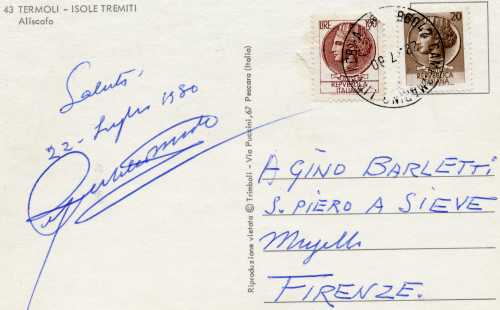 43 TERMOLI - ISOLE TREMITI
Aliscafo
Saluti
22 - Luglio 1980
Riproduzione vietata © Trimboli - Via Puccini, 67 Pescara (Italia)
LIRE 150
REPVBBLICA
ITALIANA
20
REPVBBLICA
A GINO BARLETTI
S. PIERO A SIEVE
Mugello
FIRENZE.